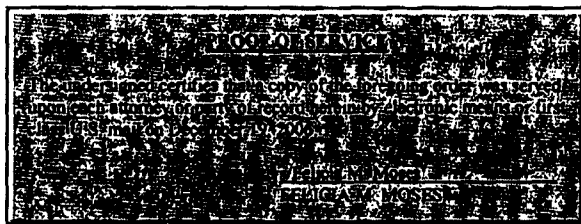 PROOF OF SERVICE
The undersigned certifies that a copy of the foregoing order was served
upon each attorney or party of record herein by electronic means or first
class U.S. mail on December 19, 2006.
s/Felicia M. Moses
FELICIA M. MOSES